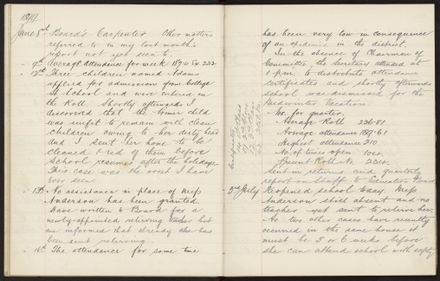 1894.
June 5th Board's Carpenter. Other matters
referred to in my last month's
report not yet seen to.
9th Average attendance for week 189.6 &
13th Three children named Adams
applied for admission from College
St School and were entered on
the Roll. Shortly afterwards I
discovered that the
unfit to remain with
children owing to her dirty head
and I sent her home to be
cleaned & rid of them before
School resumes after the holidays.
This case was the worst I have
ever seen.
15th No assistance in place of Miss
Anderson has been granted.
Have written to Board for a
newly-appointed relieving teacher but
am informed that already she has
been sent relieving.
The attendance for some time
has been very low in consequence
of an epidemic in the district.
In the absence of Chairman of
Committee, the Secretary attended at
1 p.m. to distribute attendance
certificates and shortly afterwards
school was dismissed for the
Midwinter Vacation.
Av. for quarter.
Average Roll 236.81
Average attendance 189.61
Highest attendance 210
No of times open
Present Roll No
Sent in returns and quarterly
report on staff to Education Board
2nd July Reopened school today. Miss
Anderson still absent and no
teacher yet sent to relieve her.
As two other cases have recently
occurred in the same house it
must be 5 or 6 weeks before
she can attend school with safety